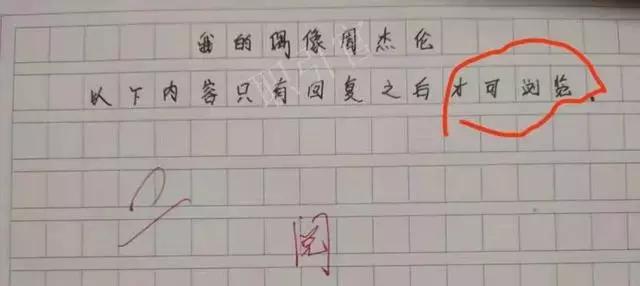 我的偶像周杰伦
以下内容只有回复之后才可浏览.
阅